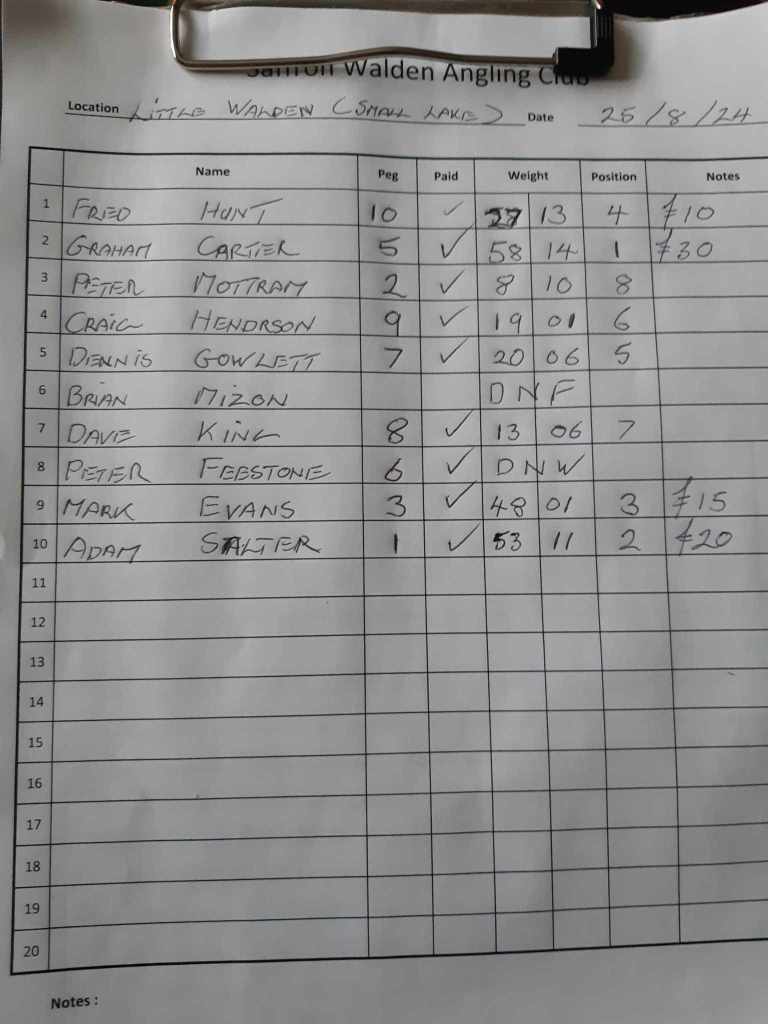 Saffron Walden Angling Club
Location LITTLE WALDEN (SMALL LAKE) Date 25/8/24
Name Peg Paid Weight Position Notes
1 FRED HUNT 10 ✓ 13 4 £10
2 GRAHAM CARTER 5 ✓ 58 14 1 £30
3 PETER MOTTRAM 2 ✓ 8 10 8
4 CRAIG HENDRSON 9 ✓ 19 01 6
5 DENNIS GOWLETT 7 ✓ 20 06 5
6 BRIAN MIZON DNF
7 DAVE KING 8 ✓ 13 06 7
8 PETER FEBSTONE 6 ✓ DNW
9 MARK EVANS 3 ✓ 48 01 3 £15
10 ADAM SALTER 1 ✓ 53 11 2 £20
11
12
13
14
15
16
17
18
19
20
Notes :